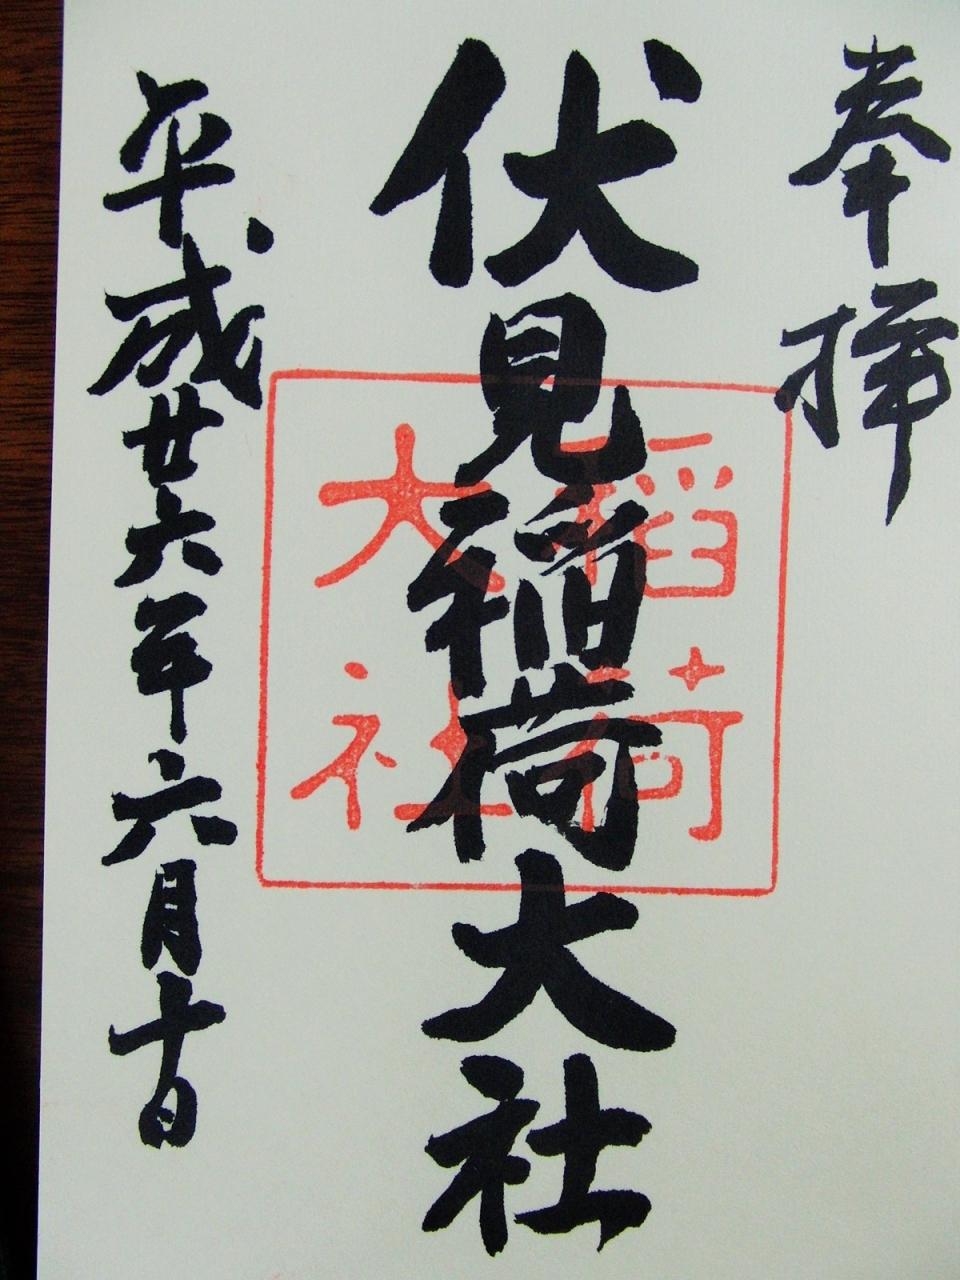 奉拝
伏見稲荷大社
稲荷
大社
平成廿六年六月十日